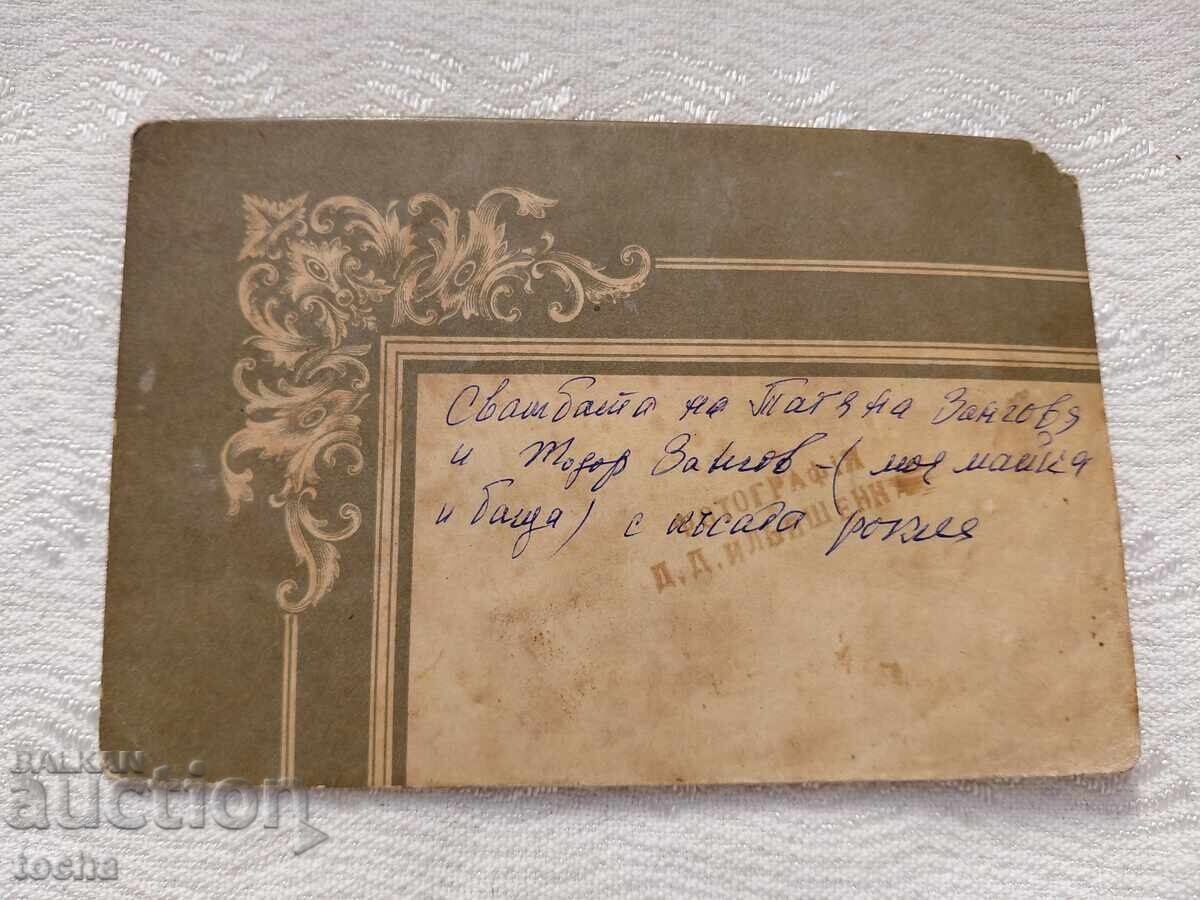 Сватбата на Татяна Зангова
и Тодор Зангов - (моя майка
и баща) с късата рокля
ФОТОГРАФІЯ
Д. Д. ИЛЬЮШЕНКА
BALKAN
auction
tocha